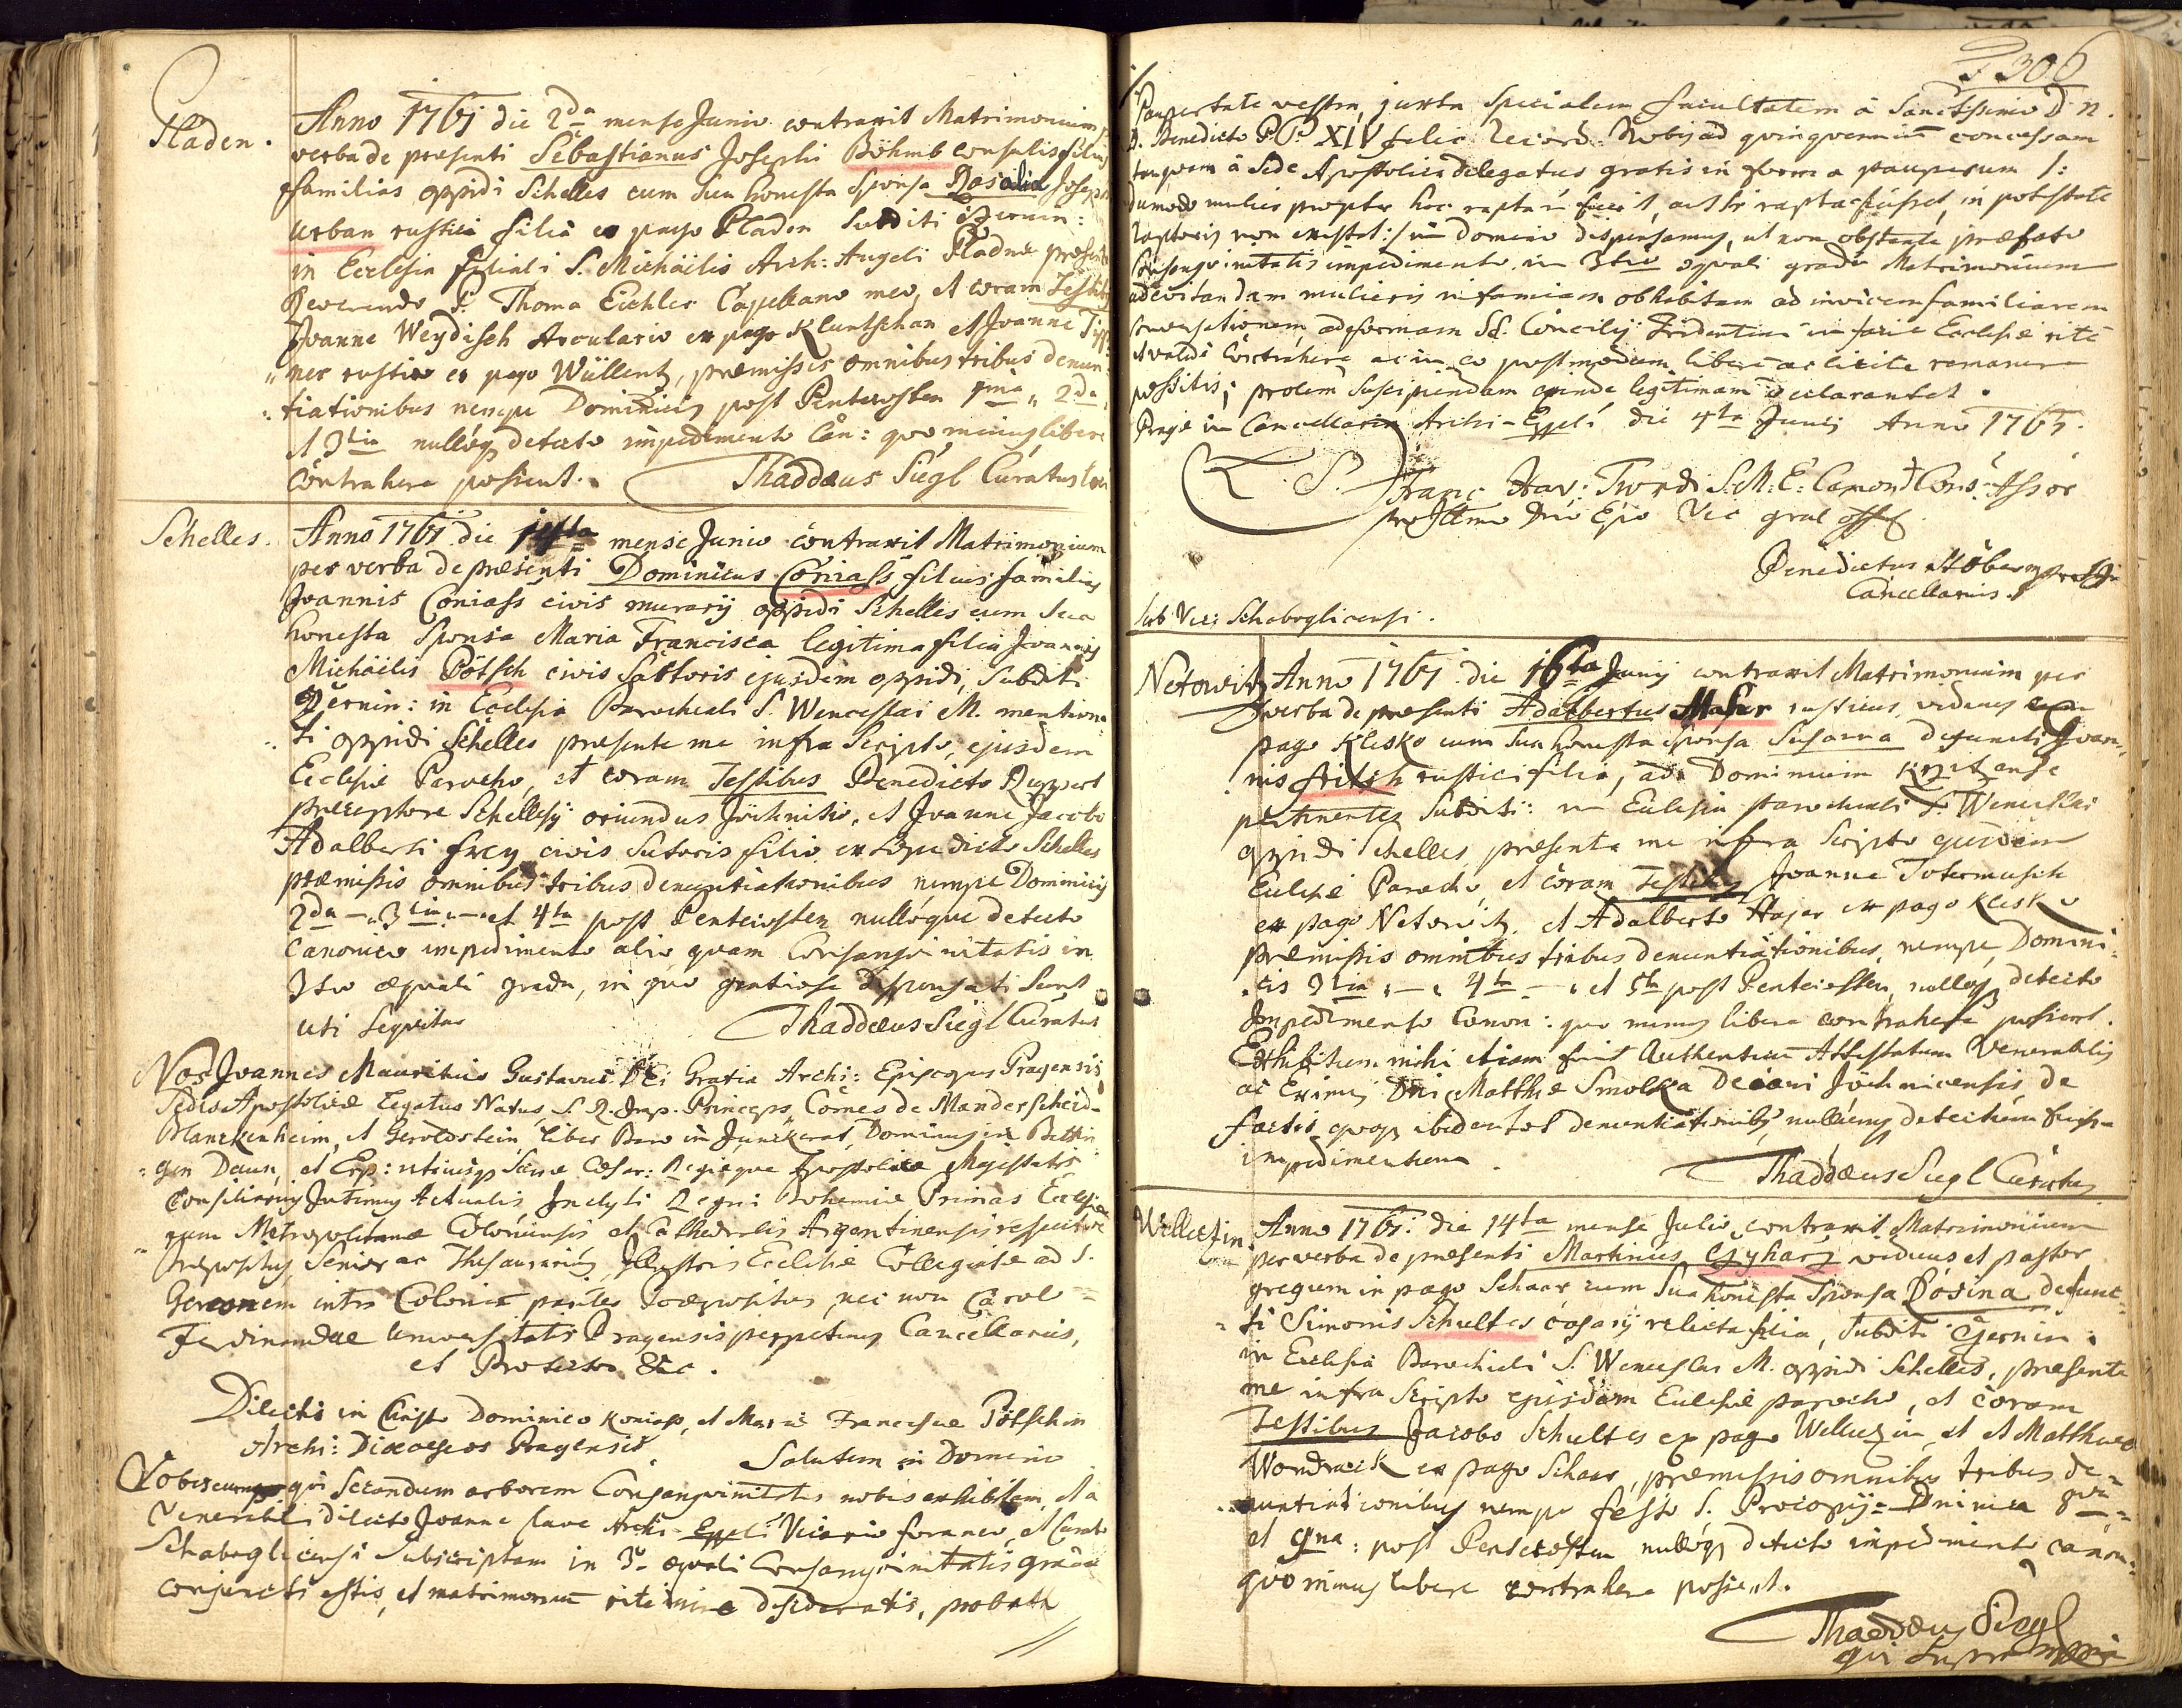 Pladen.
Anno 1761 die 2da mense Junio contraxit Matrimonium
verba de presenti Sebastianus Josephi Böhmb consulis filius
familias oppidi Schelles cum sua honesta Sponsa Rosalia Josephi
Urban rustici filia ex pago Pladen Subditi Czernin:
in Ecclesia filiali S. Michaëlis Arch: Angeli Pladnæ presente
Reverendo P. Thoma Eichler Capellano meo, et coram Testibus
Joanne Weydisch Arculario ex pago Kluntschan et Joanne
ner rustico ex pago Wüllentz, præmissis omnibus tribus denun-
tiationibus nempe Dominicis post Pentecosten 1ma, 2da,
et 3tia nulloq detecto impedimento Can: quo minus libere
contrahere possent. Thaddæus Siegl Curatus
Schelles.
Anno 1761 die mense Junio contraxit Matrimonium
per verba de præsenti Dominicus Coniass filius familias
Joannis Coniass civis murarij oppidi Schelles cum sua
honesta Sponsa Maria Francisca legitima filia Joannis
Michaëlis Pötsch civis Sartoris ejusdem oppidi, Subditi
Czernin: in Ecclesia Parochiali S. Wenceslai M. mentiona
ti oppidi Schelles præsente me infra Scripto, ejusdem
Ecclesiæ Parocho, et coram Testibus Benedicto Ruppert
præceptore Schellesij oriundus Jechnitio, et Joanne Jacobo
Adalberti Frey civis Sutoris filio ex supra dicto Schelles
præmissis omnibus tribus denuntiationibus nempe Dominicis
2da - 3tia - et 4ta post Pentecosten nulloque detecto
Canonico impedimento alio quam Consanguinitatis in
3tio æquali gradu, in quo gratiose dispensati sunt
uti sequitur Thaddæus Siegl Curatus
Nos Joannes Mauritius Gustavus Dei Gratia Archi: Episcopus Pragensis
Sedis Apostolicæ Legatus Natus S. R. Imp. Princeps, Comes de Manderscheid-
Blanckenheim, et Geroldstein, Liber Baro in Junckerat, Dominus in Bettin
gen Daun, et Erp: utriusq Sacræ Cæsar: Regiæque Apostolicæ Majestatis
Consiliarius Intimus Actualis, Inclyti Regni Bohemiæ Primas Ecclesia
rum Metropolitanæ Coloniensis et Cathedralis Argentinensis respective
Præpositus, Senior ac Thesaurarius, Illustris Ecclesiæ Collegiatæ ad S.
Gereonem intra Coloniam pariter Præpositus, nec non Carol=
Ferdinandeæ Universitatis Pragensis perpetuus Cancellarius,
et Protector &c.
Dilectis in Christo Dominico Koniass, et Mariæ Franciscæ Pötschin
Archi: Dioeceseos Pragensis Salutem in Domino
Vobiscum qui Secundum arborem Consanguinitatis nobis exhibitam, et a
Venerabili dilecto Joanne Archi-Eppali Vicario foraneo, et Curato
Schaboglicensi Subscriptam in 3o æquali Consanguinitatis gradu
conjuncti estis, et matrimonium rite inire desideratis, probata
306
Paupertate vestra, juxta Specialem facultatem a Sanctissimo D. N.
D. Benedicto PP. XIV felic: Record: Nobis ad quinquennium concessam
tanquam a Sede Apostolica delegatus gratis in forma pauperum /:
dumodo mulier propter hoc rapta non fuerit, aut si rapta fuisset, in potestate
raptoris non existat:/ in Domino dispensamus, ut non obstante præfato
Consanguinitatis impedimento in 3tio æquali gradu Matrimonium
ad evitandam mulieris infamiam ob habitam ad invicem familiarem
conversationem, ad formam Sa. Concilij Tridentini in facie Ecclesiæ rite
et valide Contrahere ac in eo postmodum libere ac licite remanere
possitis; prolem Suscipiendam exinde legitimam declarantes.
Pragæ in Cancellaria Archi-Eppali die 4ta Junij Anno 1761.
L. S. Franc: Xav: Twrdi S. M. E. Canon Cons: Assor
pro Illmo Dno Epo Vic gral offs
Benedictus Stöber
Cancellarius.
Sub Vic: Schaboglicensi.
Netowitz
Anno 1761 die 16ta Junij contraxit Matrimonium per
verba de præsenti Adalbertus Maser rusticus viduus ex
pago Klesko cum sua honesta sponsa Susanna defuncti Joan-
nis Fritsch rustici filia, ad Dominium
pertinentes Subditi: in Ecclesia parochiali S. Wenceslai
oppidi Schelles præsente me infra Scripto ejusdem
Ecclesiæ Parocho, et coram Testibus Joanne Totermusch
ex pago Netowitz, et Adalberto Hajer ex pago Klesko
præmissis omnibus tribus denuntiationibus, nempe Domini-
cis 3tia - 4ta - et 5ta post Pentecosten, nulloq detecto
Impedimento Canon: quo minus libere contrahere possent.
Exhibitum mihi etiam fuit Authenticum Attestatum Venerabilis
ac Eximij Dni Matthiæ Smolka Decani Jechnicensis de
factis quoq ibidem tot denuntiationibus nullumq detectum fuisse
impedimentum.
Thaddæus Siegl Curatus
Wellezin
Anno 1761. die 14ta mense Julio contraxit Matrimonium
per verba de præsenti Martinus Czyharz viduus et pastor
gregum in pago Schaar cum sua honesta Sponsa Rosina defunc-
ti Simonis Schultes casarij relicta filia, Subditi Czernin:
in Ecclesia Parochiali S. Wenceslai M. oppidi Schelles, præsente
me infra Scripto ejusdem Ecclesiæ parocho, et coram
Testibus Jacobo Schultes ex pago Wellezin, et Matthæo
Wondraczk ex pago Schaar, præmissis omnibus tribus de=
nuntiationibus nempe festo S. Procopij = Dninica 8va =
et 9na: post Pentecosten nulloq detecto impedimento canon=
quo minus libere contrahere possent.
Thaddæus Siegl
qui Supra mpria